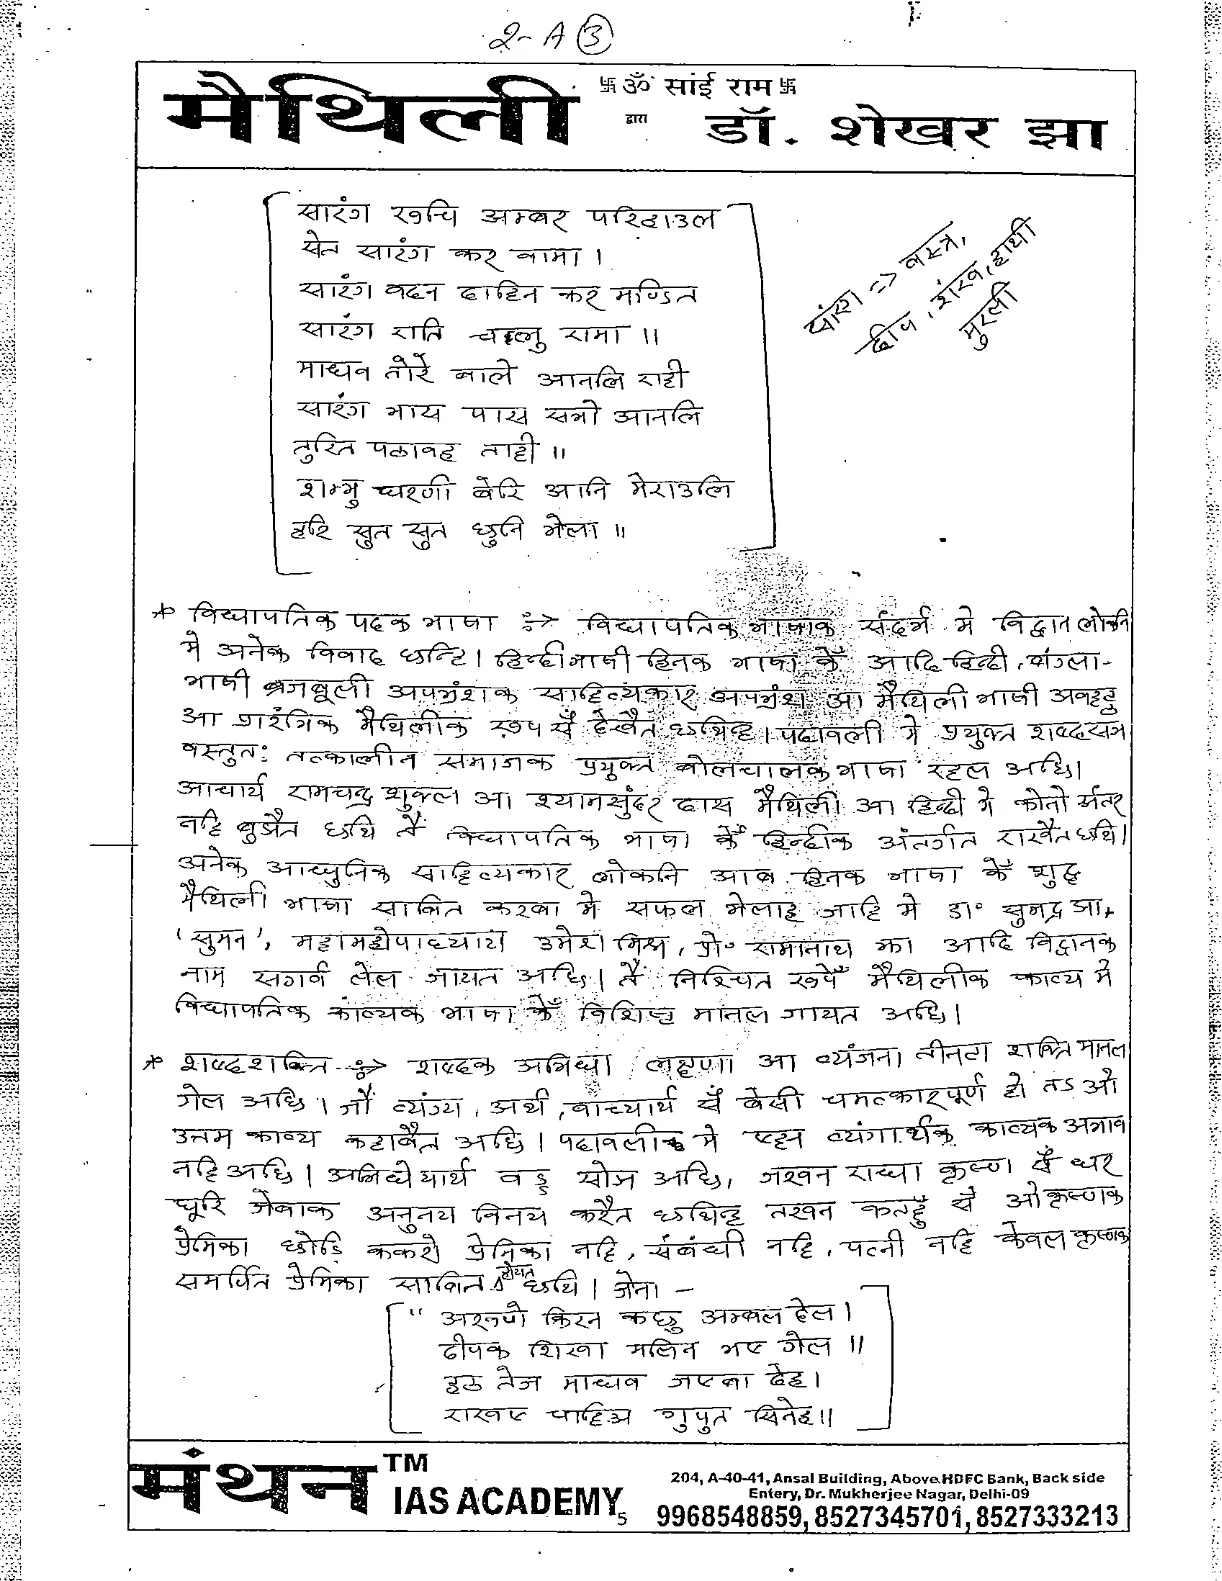 2-A ③
मैथिली
卐 ॐ सांई राम 卐
द्वारा
डॉ. शेखर झा
सारंग रुचि अम्बर परिहाउल
सेत सारंग कर बामा ।
सारंग वदन दाहिन कर मण्डित
सारंग राति चललु रामा ॥
माधव तोरे बोले आनलि राही
सारंग भाय पास सञो आनलि
तुरित पठावह ताही ॥
शम्भु घरणी बेरि आनि मेराउलि
हरि सुत सुत धुनि भेला ॥
सारंग => वस्त्र,
दीप, शंख, हाथी
मुरली
* विद्यापतिक पदक भाषा :=> विद्यापतिक भाषाक संदर्भ मे विद्वान लोकनि
मे अनेक विवाद छन्हि। हिन्दी भाषी हिनक भाषा केँ आदि हिन्दी, बांग्ला-
भाषी ब्रजबूली अपभ्रंशक साहित्यकार अपभ्रंश आ मैथिली भाषी अवहट्ठ
आ प्रारंभिक मैथिलीक रूप सँ देखैत छथिन्ह। पदावली मे प्रयुक्त शब्द सभ
वस्तुतः तत्कालीन समाजक प्रयुक्त बोलचालक भाषा रहल अछि।
आचार्य रामचन्द्र शुक्ल आ श्यामसुंदर दास मैथिली आ हिन्दी मे कोनो अंतर
नहि बुझैत छथि तैँ विद्यापतिक भाषा केँ हिन्दीक अंतर्गत राखैत छथि।
अनेक आधुनिक साहित्यकार लोकनि आब हिनक भाषा केँ शुद्ध
मैथिली भाषा साबित करबा मे सफल भेलाह जाहि मे डा॰ सुभद्र झा,
'सुमन', महामहोपाध्याय उमेश मिश्र, प्रो॰ रामानाथ झा आदि विद्वानक
नाम सगर्व लेल जायत अछि। तैँ निश्चित रूपेँ मैथिलीक काव्य मे
विद्यापतिक काव्यक भाषा केँ विशिष्ट मानल जायत अछि।
* शब्दशक्ति :=> शब्दक अभिधा, लक्षणा आ व्यंजना तीनटा शक्ति मानल
गेल अछि। जौँ व्यंग्य, अर्थ, वाच्यार्थ सँ बेसी चमत्कारपूर्ण हो तऽ ओ
उत्तम काव्य कहाबैत अछि। पदावलीक मे एहन व्यंगार्थक काव्यक अभाव
नहि अछि। अभिधेयार्थ बड्ड सोझ अछि, जखन राधा कृष्ण सँ घर
घूरि जेबाक अनुनय विनय करैत छथिन्ह तखन कतहुँ सँ ओ कृष्णक
प्रेमिका छोड़ि ककरो प्रेमिका नहि, संबंधी नहि, पत्नी नहि केवल कृष्णक
समर्पित प्रेमिका साबित होयत छथि। जेना –
" अरुणे किरन कछु अम्बल देल।
दीपक शिखा मलिन भए गेल ॥
हठ तेज माधव जएबा देह।
राखए चाहिअ गुपुत सिनेह॥
मंथन TM
IAS ACADEMY
5
204, A-40-41, Ansal Building, Above HDFC Bank, Back side
Entery, Dr. Mukherjee Nagar, Delhi-09
9968548859, 8527345701, 8527333213